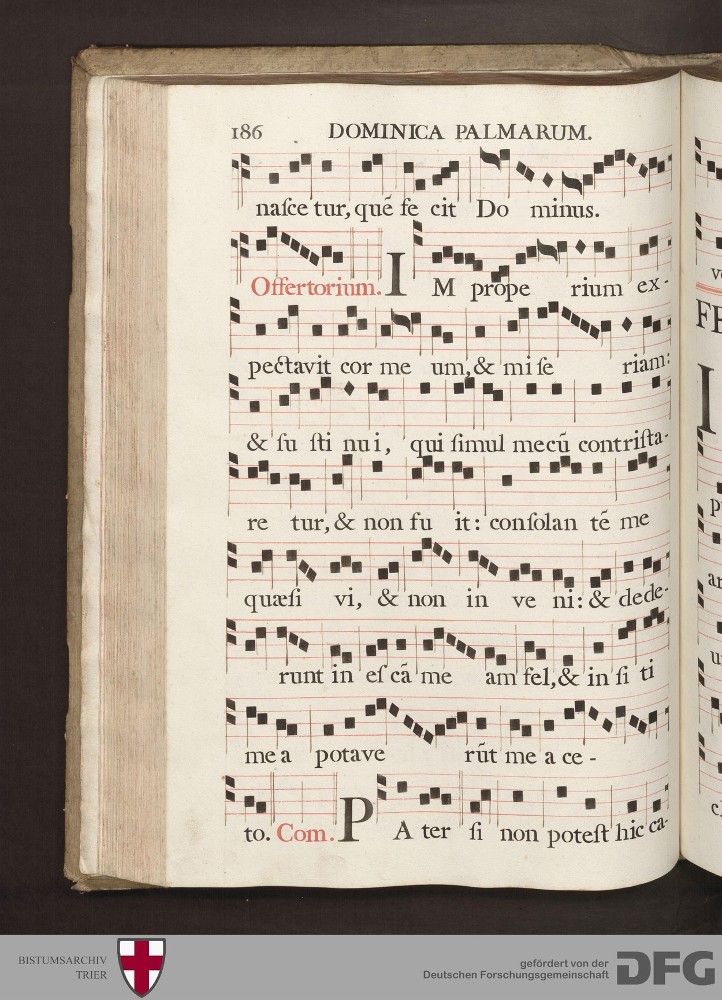 186 DOMINICA PALMARUM.
naſce tur, quē fe cit Do minus.
Offertorium. IM prope rium ex-
pectavit cor me um, & mi ſe riam:
& ſu ſti nui, qui ſimul mecū contriſta-
re tur, & non fu it: conſolan tē me
quæſi vi, & non in ve ni: & dede-
runt in eſ cā me am fel, & in ſi ti
mea potave rūt me a ce-
to. Com. PA ter ſi non poteſt hic ca-
FE
I
BISTUMSARCHIV
TRIER
gefördert von der
Deutschen Forschungsgemeinschaft
DFG